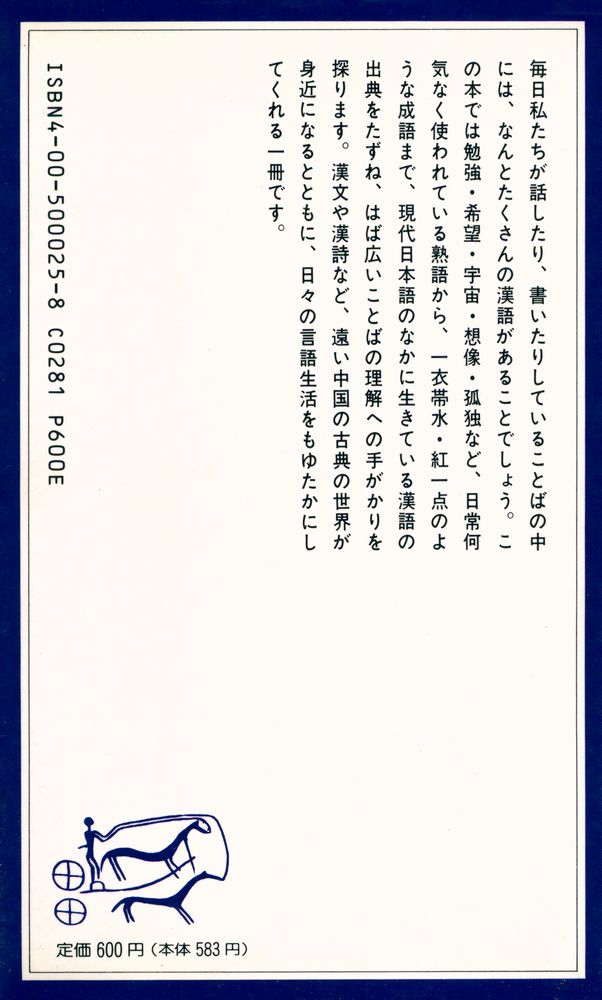 毎日私たちが話したり、書いたりしていることばの中
には、なんとたくさんの漢語があることでしょう。こ
の本では勉強・希望・宇宙・想像・孤独など、日常何
気なく使われている熟語から、一衣帯水・紅一点のよ
うな成語まで、現代日本語のなかに生きている漢語の
出典をたずね、はば広いことばの理解への手がかりを
探ります。漢文や漢詩など、遠い中国の古典の世界が
身近になるとともに、日々の言語生活をもゆたかにし
てくれる一冊です。
ISBN4-00-500025-8 C0281 P600E
定価 600 円(本体 583 円)